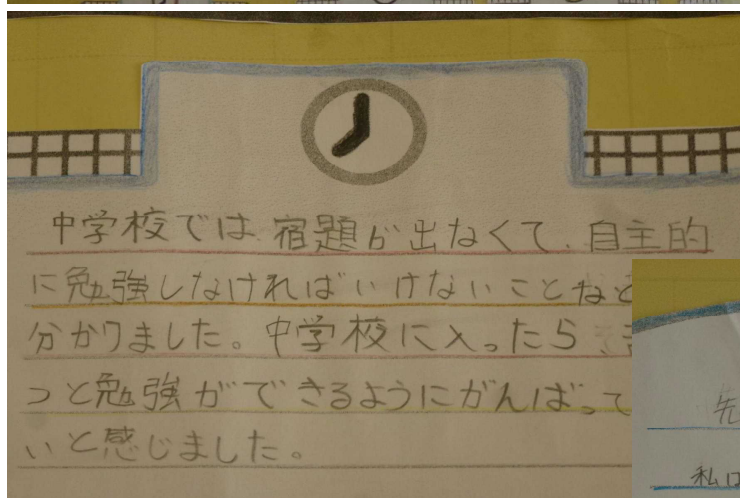 中学校では宿題が出なくて、自主的
に勉強しなければいけないことなど
分かりました。中学校に入ったら、
っと勉強ができるようにがんばって
いと感じました。
先
私は